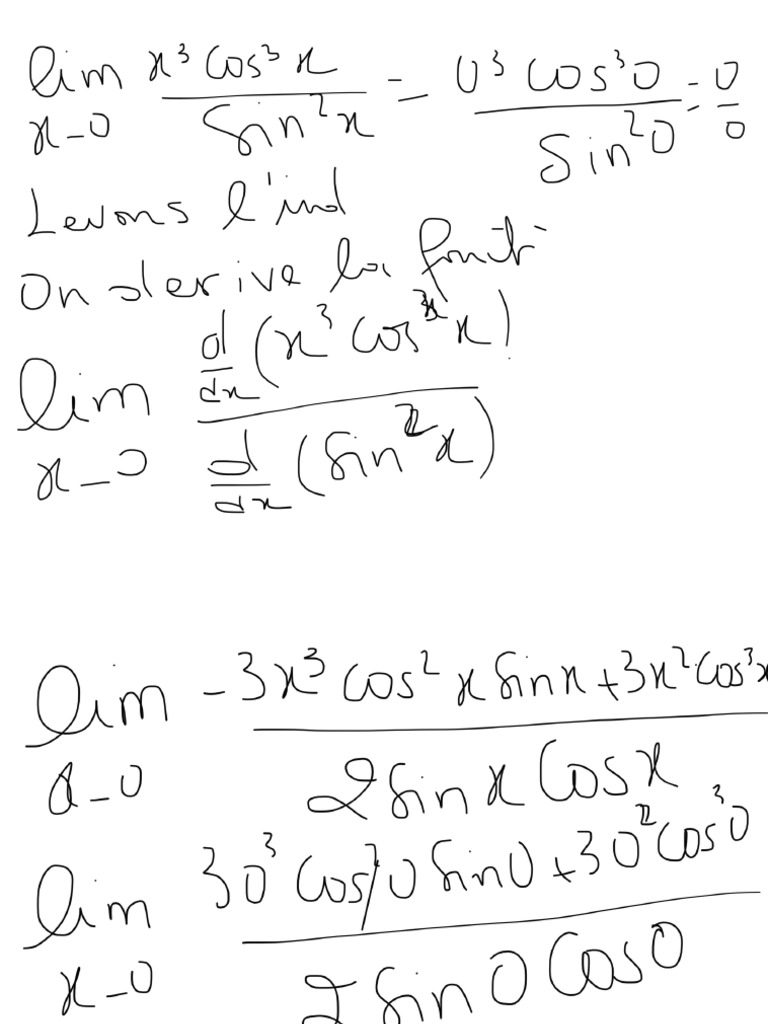 lim x³ cos³x / sin²x = 0³ cos³0 / sin²0 = 0/0
x–0
Levons l'ind
On derive la
lim d/dx (x³ cos³x) / d/dx (sin²x)
x–0
lim -3x³ cos²x sinx + 3x² cos³x / 2 sinx cosx
x–0
lim 30³ cos²0 sin0 + 30² cos³0 / 2 sin0 cos0
x–0